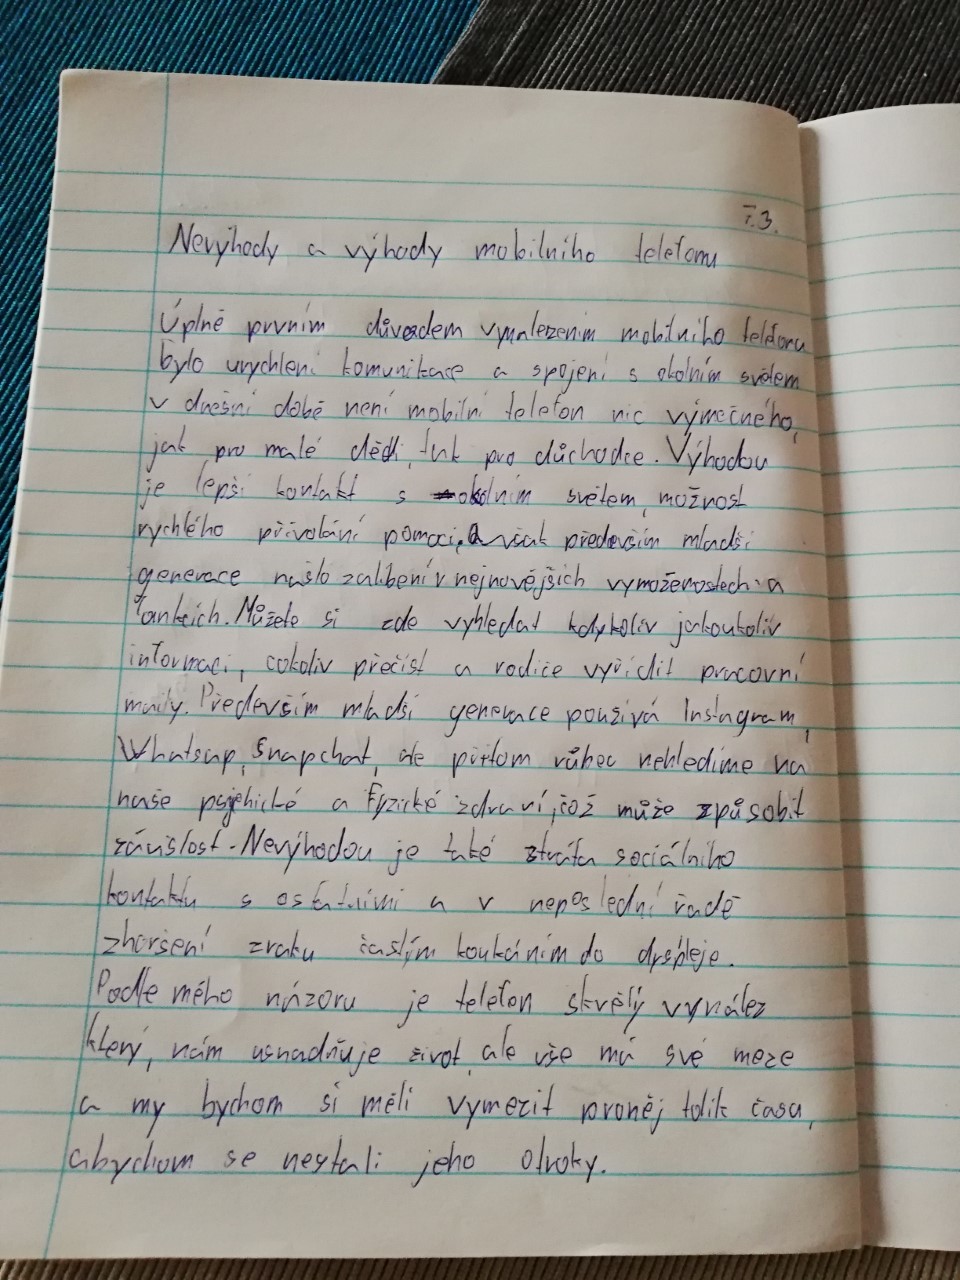 7.3.
Nevýhody a výhody mobilního telefonu
Úplně prvním důvodem vynalezením mobilního telefonu
bylo urychlení komunikace a spojení s okolním světem
v dnešní době není mobilní telefon nic výmečného,
jak pro malé dědi, tak pro důchodce. Výhodou
je lepší kontakt s okolním světem, možnost
rychlého přivolání pomoci. A však především mladší
generace našlo zalíbení v nejnovějších vymoženostech a
fankcích. Můžete si zde vyhledat kdykoliv jakoukoliv
informaci, cokoliv přečíst a rodiče vyřídit pracovní
maily. Především mladší generace používá Instagram,
Whatsap, Snapchat, ale přitom vůbec nehledíme na
naše psychické a fyzické zdraví, což může způsobit
závislost. Nevýhodou je také ztráta sociálního
kontaktu s ostatními a v neposlední řadě
zhoršení zraku častým koukáním do dyspleje.
Podle mého názoru je telefon skvělý vynález
který, nám usnadňuje život, ale vše má své meze
a my bychom si měli vymezit proněj tolik času,
abychom se nestali jeho otroky.